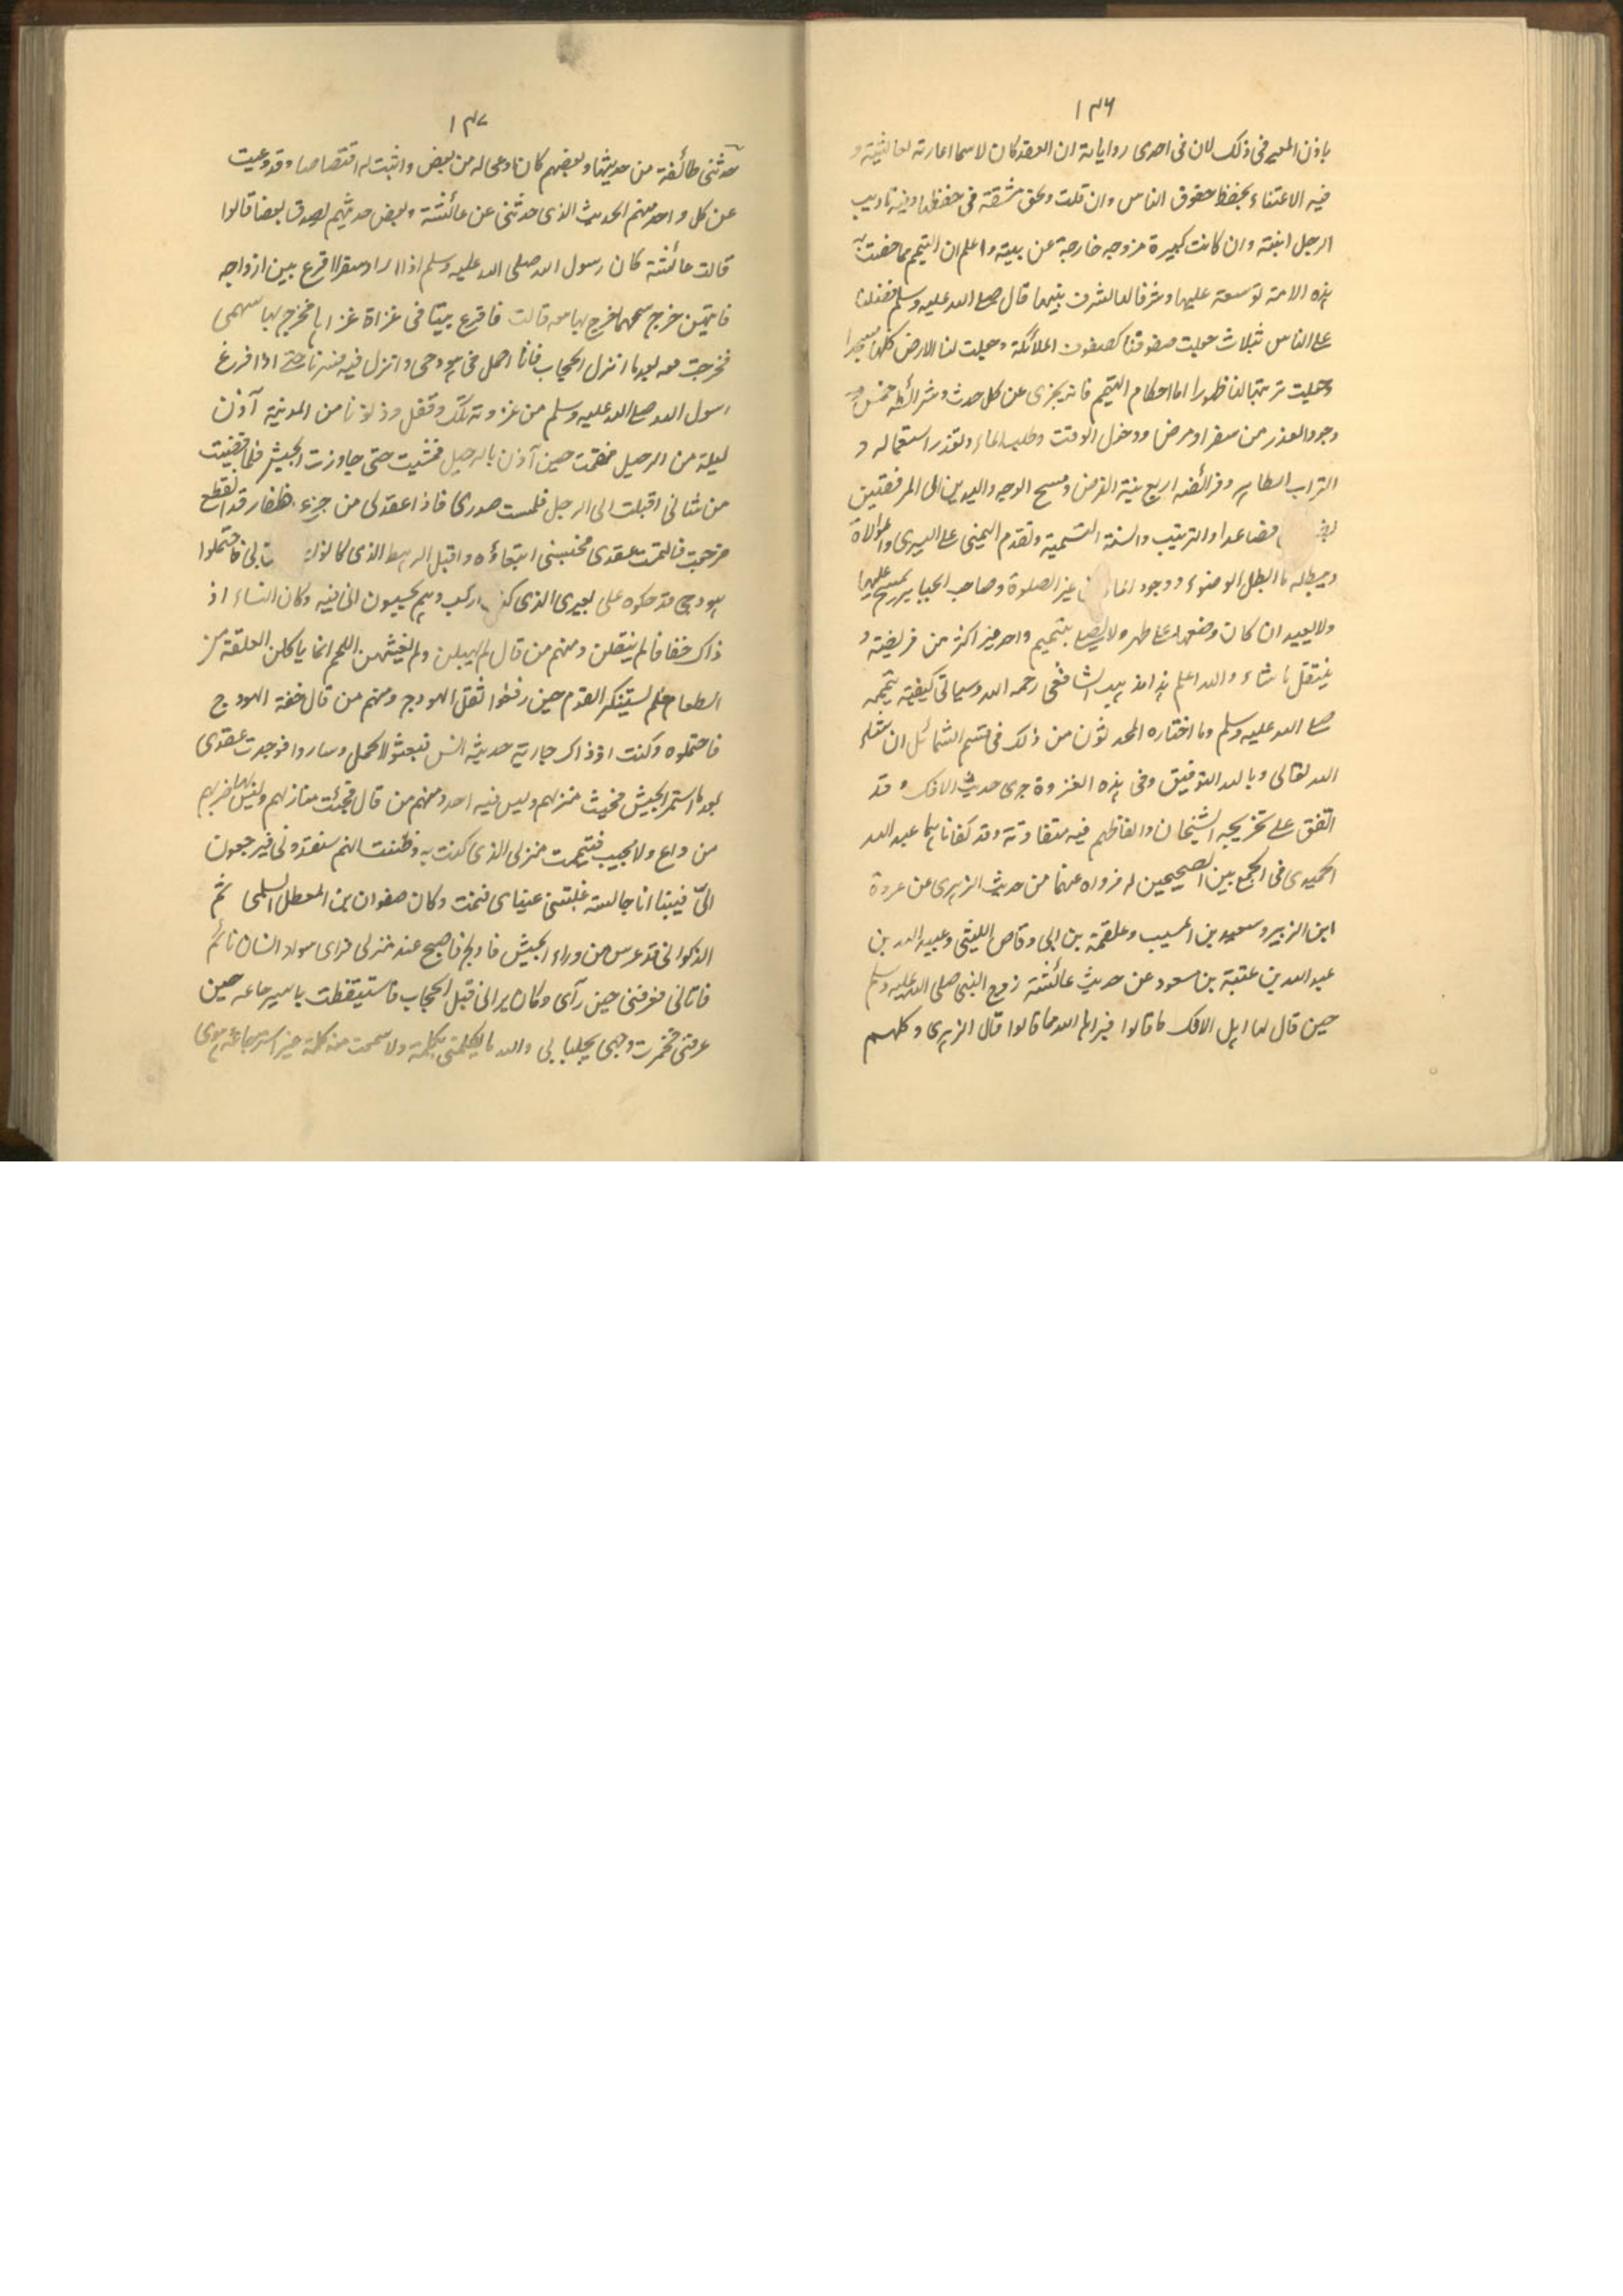 ١٣٦
باذن المعير فى ذلك لان فى احدى رواياته ان العقد كان لاسما اعارته لعائشة و
فيه الاعتناء بحفظ حقوق الناس وان قلت ولحق مشقة فى حفظها وفيه تاديب
الرجل ابنته وان كانت كبيرة مزوجه خارجة عن بيته واعلم ان التيمم مما خصت به
هذه الامة توسعة عليها وشرفا لها لشرف نبيها قال صلى الله عليه وسلم فضلنا
على الناس بثلاث جعلت صفوفنا كصفوف الملائكة وجعلت لنا الارض كلها مسجدا
وجعلت تربتها لنا طهورا اما احكام التيمم فانه يجزى عن كل حدث وشرائطه خمس
وجود العذر من سفر او مرض ودخول الوقت وطلب الماء وتعذر استعماله و
التراب الطاهر وفرائضه اربع نية الفرض ومسح الوجه واليدين الى المرفقين
فصاعدا والترتيب والسنة التسمية وتقدم اليمنى على اليسرى والموالاة
ويبطله ما ابطل الوضوء ووجود الماء غير الصلوة وصاحب الجباير يمسح عليها
ولا يعيد ان كان وضعها على طهر ولا يصلى بتيمم واحد اكثر من فريضة و
يتنفل ما شاء والله اعلم هذا مذهب الشافعى رحمه الله وسياتى كيفية تيممه
صلى الله عليه وسلم وما اختاره المحدثون من ذلك فى قسم الشمائل ان شاء
الله تعالى وبالله التوفيق وفى هذه الغزوة جرى حديث الافك وقد
اتفق على تخريجه الشيخان والفاظهم فيه متفاوتة وقد كفاناهما عبد الله
الحميدى فى الجمع بين الصحيحين له فرواه عنهما من حديث الزهرى عن عروة
ابن الزبير وسعيد بن المسيب وعلقمة بن ابى وقاص الليثى وعبيد الله بن
عبد الله بن عتبة بن مسعود عن حديث عائشة زوج النبى صلى الله عليه وسلم
حين قال لها اهل الافك ما قالوا فبراها الله مما قالوا قال الزهرى وكلهم
١٣٧
حدثنى طائفة من حديثها وبعضهم كان اوعى له من بعض واثبت له اقتصاصا وقد وعيت
عن كل واحد منهم الحديث الذى حدثنى عن عائشة وبعض حديثهم يصدق بعضا قالوا
قالت عائشة كان رسول الله صلى الله عليه وسلم اذا اراد سفرا اقرع بين ازواجه
فايتهن خرج سهمها خرج بها معه قالت فاقرع بيننا فى غزاة غزاها فخرج بها سهمى
فخرجت معه بعدما انزل الحجاب فانا احمل فى هودجى وانزل فيه فسرنا حتى اذا فرغ
رسول الله صلى الله عليه وسلم من غزوته تلك وقفل ودنونا من المدينة آذن
ليلة من الرحيل فقمت حين آذن بالرحيل فمشيت حتى جاوزت الجيش فلما قضيت
من شانى اقبلت الى الرحل فلمست صدرى فاذا عقد لى من جزع ظفار قد انقطع
فرجعت فالتمست عقدى فحبسنى ابتغاؤه واقبل الرهط الذى كانوا بى فاحتملوا
هودجى فرحلوه على بعيرى الذى كنت اركب وهم يحسبون انى فيه وكان النساء اذ
ذاك خفافا لم يثقلن ومنهم من قال لم يهبلن ولم يغشهن اللحم انما ياكلن العلقة من
الطعام فلم يستنكر القوم حين رفعوا ثقل الهودج ومنهم من قال خفة الهودج
فاحتملوه وكنت اذ ذاك جارية حديثة السن فبعثوا الجمل وساروا فوجدت عقدى
بعدما استمر الجيش فجئت منزلهم وليس فيه احد ومنهم من قال فجئت منازلهم وليس بها
من داع ولا مجيب فتيممت منزلى الذى كنت به وظننت انهم سيفقدونى فيرجعون
الىّ فبينا انا جالسة غلبتنى عيناى فنمت وكان صفوان بن المعطل السلمى ثم
الذكوانى قد عرس من وراء الجيش فادلج فاصبح عند منزلى فراى سواد انسان نائم
فاتانى فعرفنى حين رآى وكان يرانى قبل الحجاب فاستيقظت باسترجاعه حين
عرفنى فخمرت وجهى بجلبابى والله ما يكلمنى بكلمة ولا سمعت منه كلمة غير استرجاعه